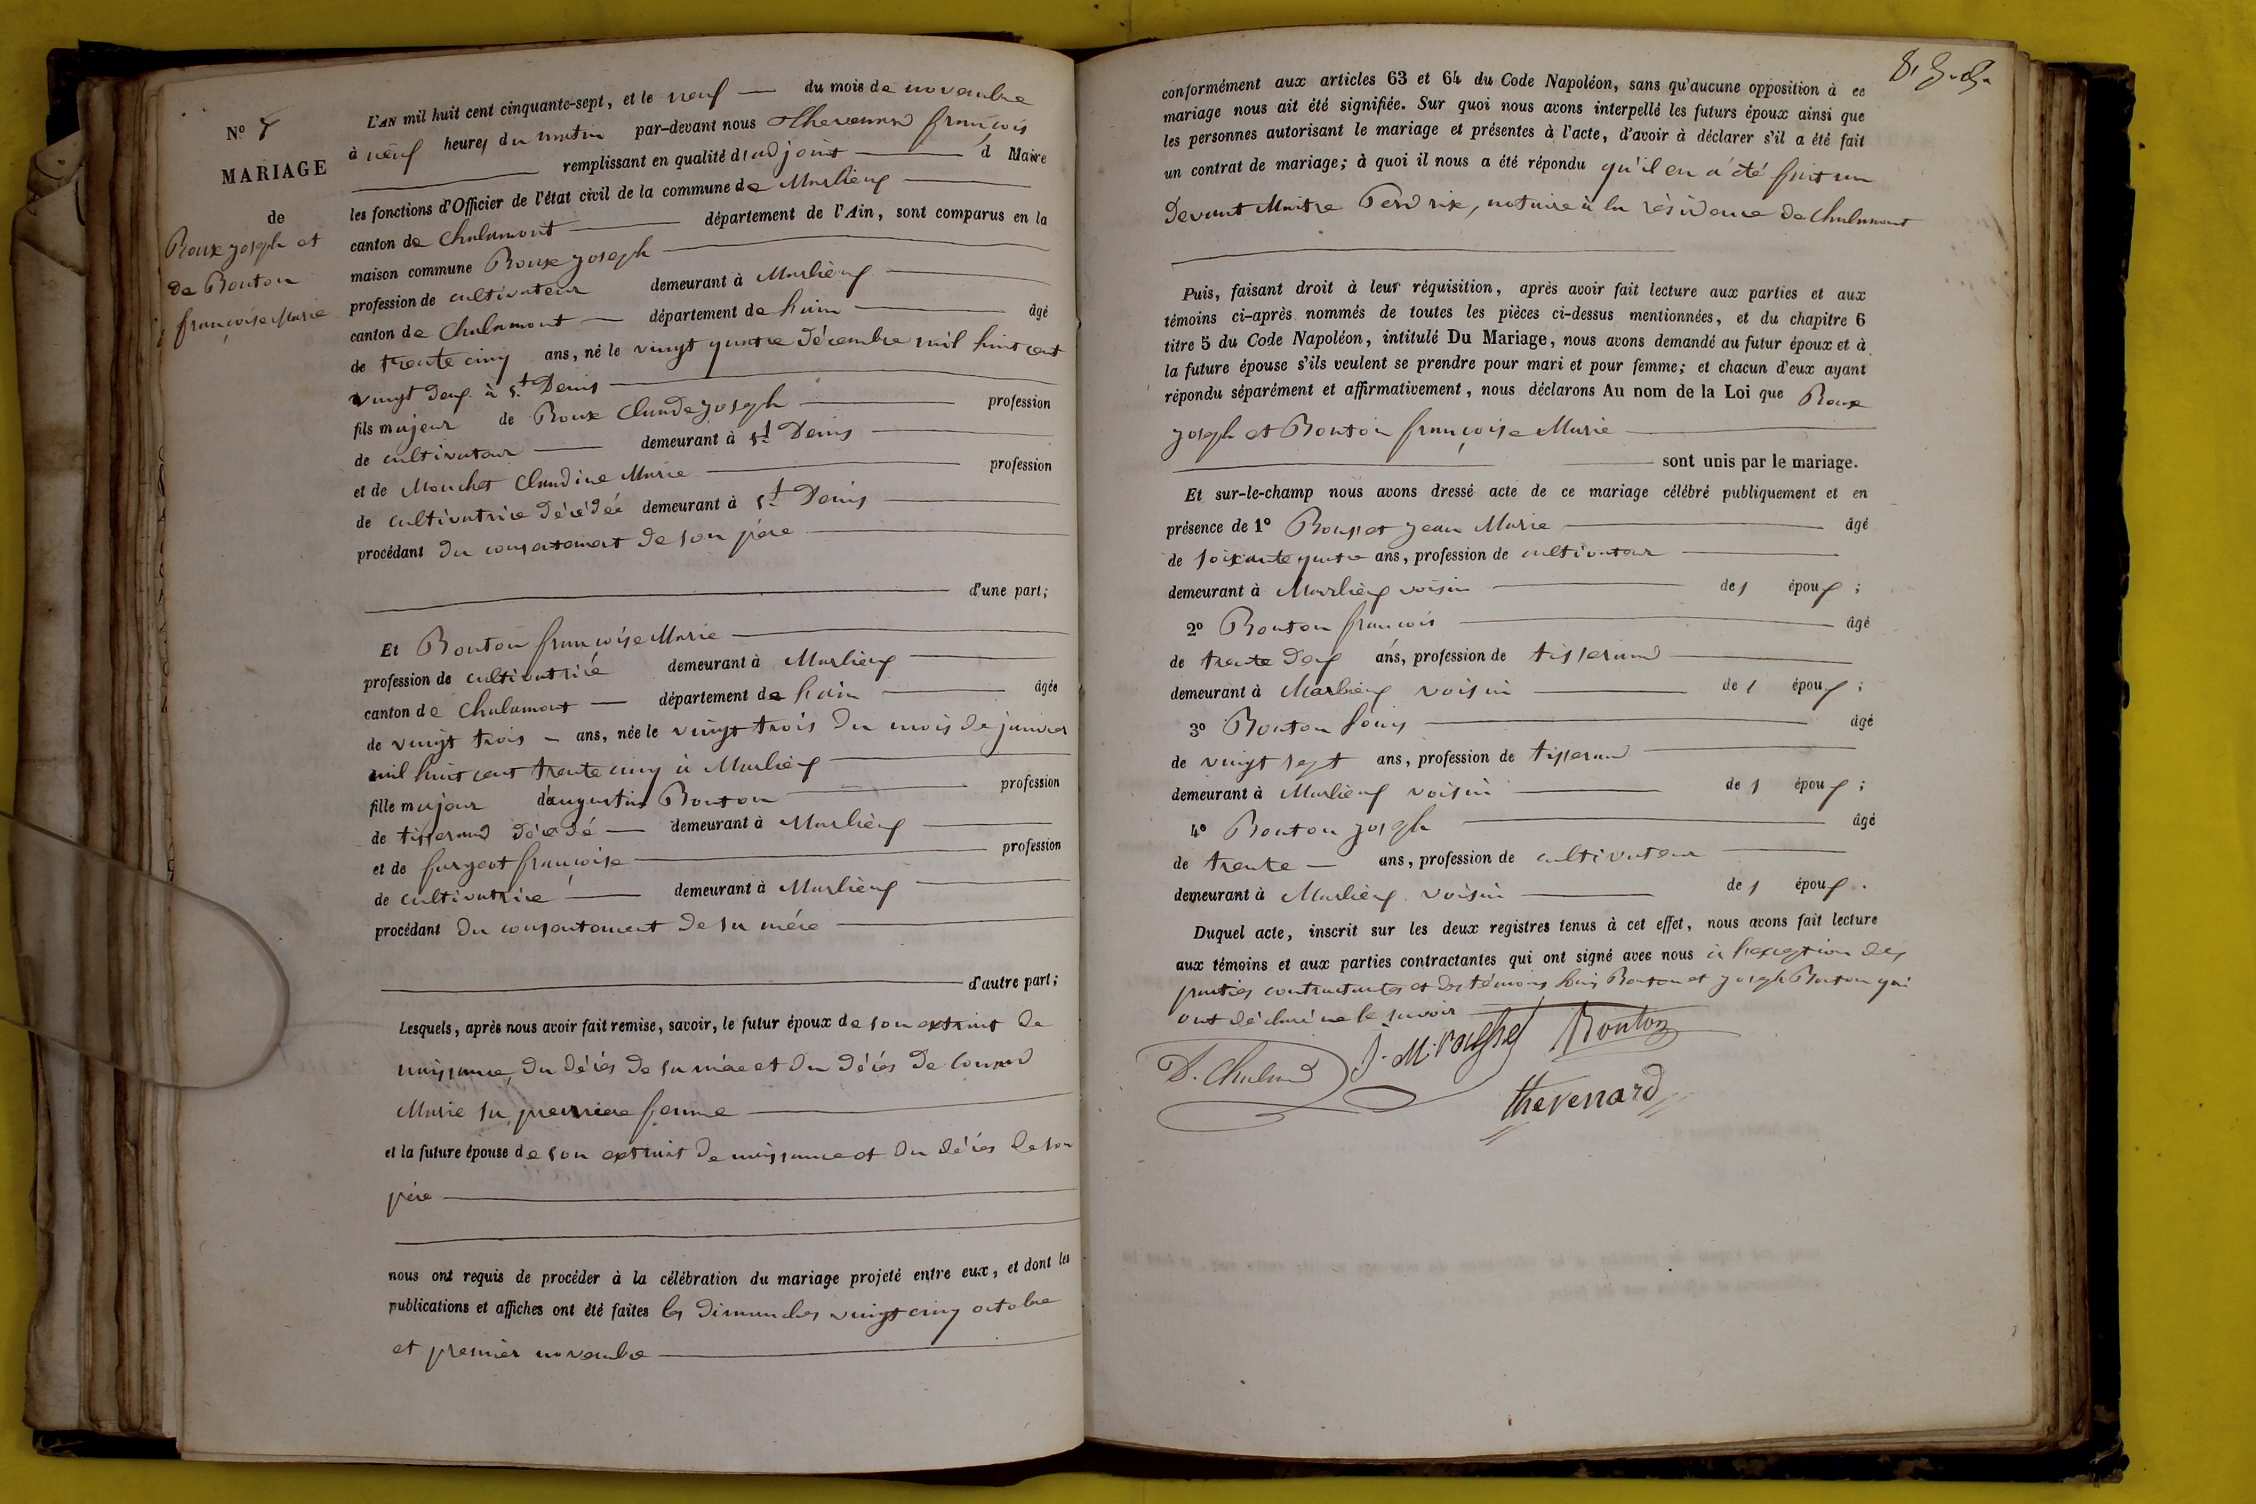 N° 8
MARIAGE
de
Roux joseph et
de Bouton
françoise Marie
L'AN mil huit cent cinquante-sept, et le neuf du mois de novembre
à neuf heures du matin par-devant nous thevenard françois
remplissant en qualité d'adjoint d Maire
les fonctions d'Officier de l'état civil de la commune de Marlieux
canton de Chalamont département de l'Ain, sont comparus en la
maison commune Roux joseph
profession de cultivateur demeurant à Marlieux
canton de Chalamont département de hain âgé
de trente cinq ans, né le vingt quatre décembre mil huit cent
vingt deux à St Denis
fils majeur de Roux Claude joseph profession
de cultivateur demeurant à St Denis
et de Monchet Claudine Marie profession
de cultivatrice décédée demeurant à St Denis
procédant du consentement de son père
d'une part;
Et Bouton françoise Marie
profession de cultivatrice demeurant à Marlieux
canton de Chalamont département de hain âgée
de vingt trois ans, née le vingt trois du mois de janvier
mil huit cent trente cinq à Marlieux
fille majeur d'augustin Bouton profession
de tisserand décédé demeurant à Marlieux
et de fargeot françoise profession
de cultivatrice demeurant à Marlieux
procédant du consentement de sa mère
d'autre part;
Lesquels, après nous avoir fait remise, savoir, le futur époux de son extrait de
naissance, du décès de sa mère et du décès de
Marie sa première femme
et la future épouse de son extrait de naissance et du décès de son
père
nous ont requis de procéder à la célébration du mariage projeté entre eux, et dont les
publications et affiches ont été faites les dimanches vingt cinq octobre
et premier novembre
conformément aux articles 63 et 64 du Code Napoléon, sans qu'aucune opposition à ce
mariage nous ait été signifiée. Sur quoi nous avons interpellé les futurs époux ainsi que
les personnes autorisant le mariage et présentes à l'acte, d'avoir à déclarer s'il a été fait
un contrat de mariage; à quoi il nous a été répondu qu'il en a été fait un
devant Maitre Perdrix, notaire à la résidence de Chalamont
Puis, faisant droit à leur réquisition, après avoir fait lecture aux parties et aux
témoins ci-après nommés de toutes les pièces ci-dessus mentionnées, et du chapitre 6
titre 5 du Code Napoléon, intitulé Du Mariage, nous avons demandé au futur époux et à
la future épouse s'ils veulent se prendre pour mari et pour femme; et chacun d'eux ayant
répondu séparément et affirmativement, nous déclarons Au nom de la Loi que Roux
joseph et Bouton françoise Marie
sont unis par le mariage.
Et sur-le-champ nous avons dressé acte de ce mariage célébré publiquement et en
présence de 1° Jean Marie âgé
de soixante quatre ans, profession de cultivateur
demeurant à Marlieux voisin des époux;
2° Bouton françois âgé
de trente deux ans, profession de tisserand
demeurant à Marlieux voisin des époux;
3° Bouton louis âgé
de vingt sept ans, profession de tisserand
demeurant à Marlieux voisin des époux;
4° Bouton joseph âgé
de trente ans, profession de cultivateur
demeurant à Marlieux voisin des époux.
Duquel acte, inscrit sur les deux registres tenus à cet effet, nous avons fait lecture
aux témoins et aux parties contractantes qui ont signé avec nous à l'exception des
parties contractantes et des témoins louis Bouton et joseph Bouton qui
ont déclaré ne le savoir
J. M. Bouton
thevenard